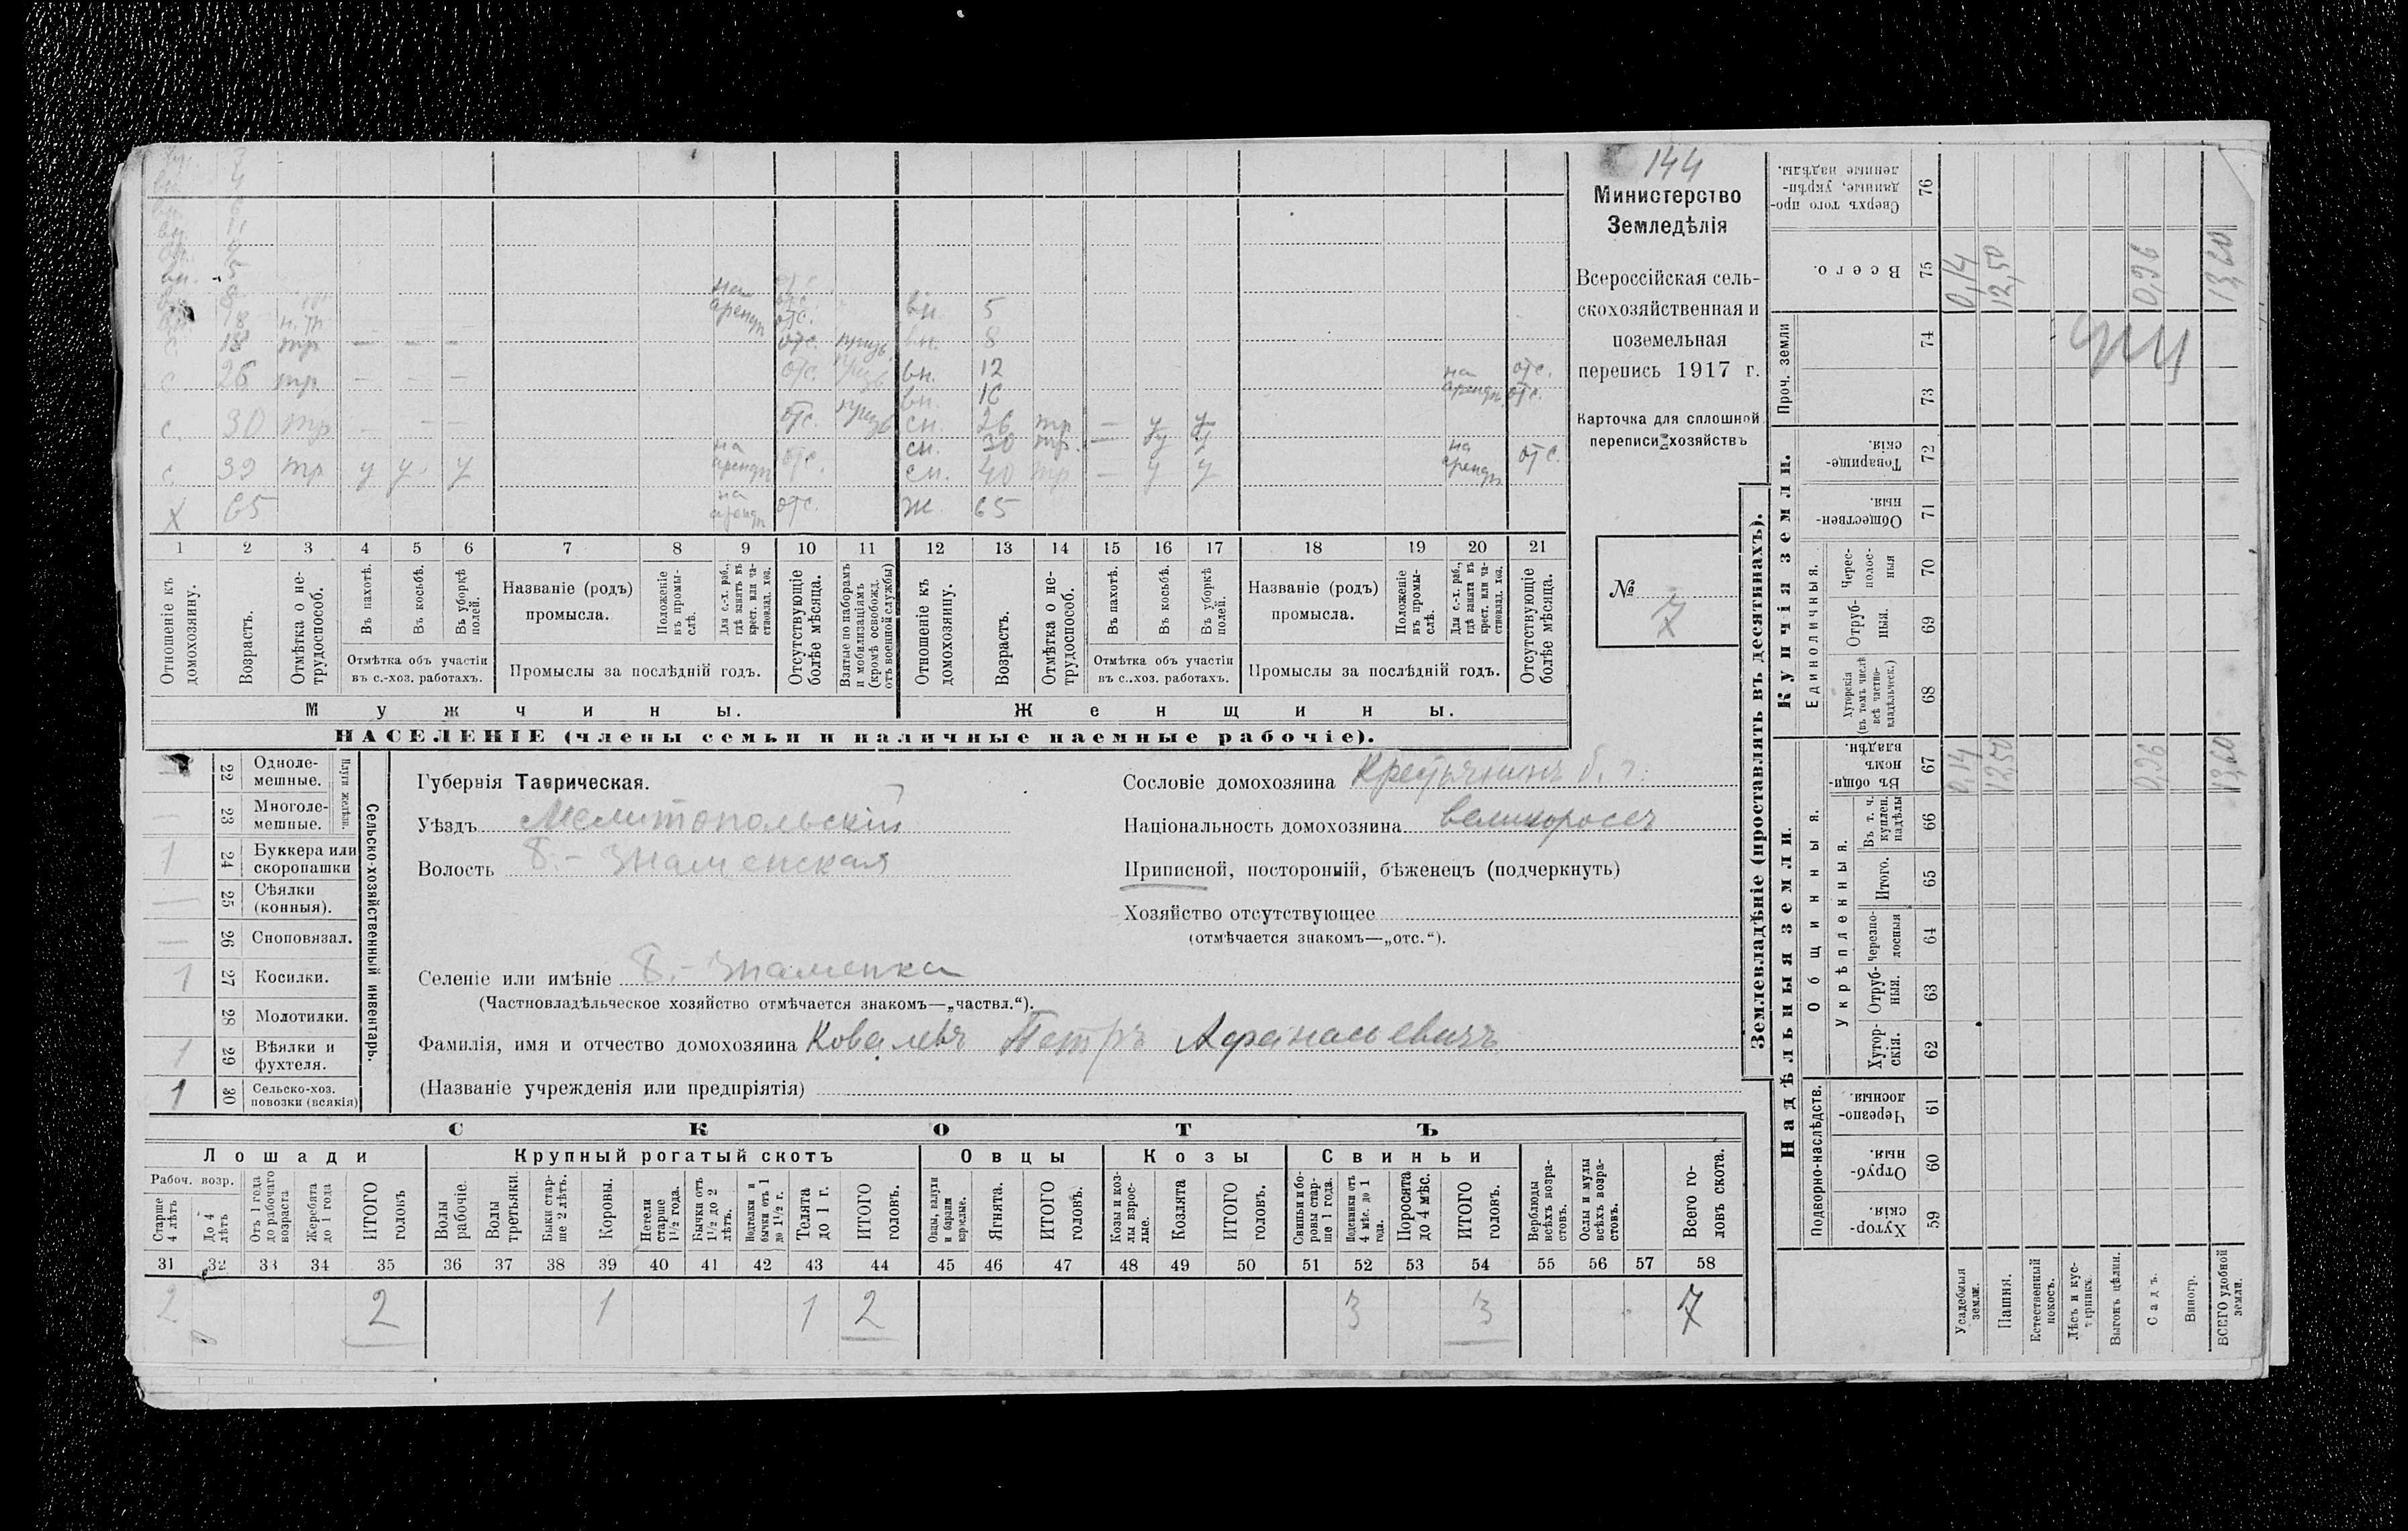 144
Министерство
Земледѣлія
Всероссійская сель-
скохозяйственная и
поземельная
перепись 1917 г.
Карточка для сплошной
переписи хозяйствъ
№ 7
вн. 5
вн. 8
вн. 12
вн.
с 18 тр — — — отс.
с 26 тр — — — отс. сн. 26 тр — у у
с. 30 тр - - - отс. сн. 30 тр. — у у
с. 39 тр у у. у на аренд отс. сн. 40 тр — у у на аренд отс.
X 65 на аренд отс. ж. 65
1 2 3 4 5 6 7 8 9 10 11 12 13 14 15 16 17 18 19 20 21
Отношеніе къ домохозяину.
Возрастъ.
Отмѣтка о не-трудоспособ.
Въ пахотѣ.
Въ косьбѣ.
Въ уборкѣ полей.
Отмѣтка объ участіи
въ с.-хоз. работахъ.
Названіе (родъ)
промысла.
Положеніе въ промы-слѣ.
Для с.-х. раб., гдѣ занятъ въ крест. или ча-стновлад. хоз.
Промыслы за послѣдній годъ.
Отсутствующіе болѣе мѣсяца.
Взятые по наборамъ и мобилизаціямъ (кромѣ освобожд. отъ военной службы)
Отношеніе къ домохозяину.
Возрастъ.
Отмѣтка о не-трудоспособ.
Въ пахотѣ.
Въ косьбѣ.
Въ уборкѣ полей.
Отмѣтка объ участіи
въ с..хоз. работахъ.
Названіе (родъ)
промысла.
Положеніе въ промы-слѣ.
Для с.-х. раб., гдѣ занята въ крест. или ча-стновлад. хоз.
Промыслы за послѣдній годъ.
Отсутствующіе болѣе мѣсяца.
Мужчины. Женщины.
НАСЕЛЕНІЕ (члены семьи и наличные наемные рабочіе).
Сельско-хозяйственный инвентарь.
Плуги желѣзн.
22 Одноле-мешные.
— 23 Многоле-мешные.
1 24 Буккера или скоропашки
— 25 Сѣялки (конныя).
— 26 Сноповязал.
1 27 Косилки.
28 Молотилки.
1 29 Вѣялки и фухтеля.
1 30 Сельско-хоз. повозки (всякія)
Губернія Таврическая.
Уѣздъ Мелитопольскій
Волость Б.-Знаменская
Сословіе домохозяина Крестьянинъ б.
Національность домохозяина великороссъ
Приписной, посторонній, бѣженецъ (подчеркнуть)
Хозяйство отсутствующее
(отмѣчается знакомъ—„отс.“).
Селеніе или имѣніе Б.-Знаменка
(Частновладѣльческое хозяйство отмѣчается знакомъ—„частвл.“).
Фамилія, имя и отчество домохозяина Ковалевъ Петръ Афанасьевичъ
(Названіе учрежденія или предпріятія)
СКОТЪ
Лошади Крупный рогатый скотъ Овцы Козы Свиньи
Рабоч. возр.
Старше 4 лѣтъ
До 4 лѣтъ
Отъ 1 года до рабочаго возраста
Жеребята до 1 года
ИТОГО головъ
Волы рабочіе.
Волы третьяки.
Быки стар-ше 2 лѣтъ.
Коровы.
Нетели старше 1½ года.
Бычки отъ 1½ до 2 лѣтъ.
Подтелки и бычки отъ 1 до 1½ г.
Телята до 1 г.
ИТОГО головъ.
Овцы, валухи и бараны взрослые.
Ягнята.
ИТОГО головъ.
Козы и коз-лы взрос-лые.
Козлята
ИТОГО головъ.
Свиньи и бо-ровы стар-ше 1 года.
Подсвинки отъ 4 мѣс. до 1 года.
Поросята до 4 мѣс.
ИТОГО головъ.
Верблюды всѣхъ возра-стовъ.
Ослы и мулы всѣхъ возра-стовъ.
Всего го-ловъ скота.
31 32 33 34 35 36 37 38 39 40 41 42 43 44 45 46 47 48 49 50 51 52 53 54 55 56 57 58
2 2 1 1 2 3 3 7
Землевладѣніе (проставлять въ десятинахъ).
Купчія земли.
Надѣльныя земли.
Сверхъ того про-данные, укрѣп-ленные надѣлы. 76
Всего. 75 0,14 12,50 0,96 13,60
Проч. земли 74 73
Товарище-скія. 72
Обществен-ныя. 71
Единоличныя.
Черес-полос-ныя 70
Отруб-ныя. 69
Хуторскія (въ томъ числѣ всѣ частно-владѣльческ.) 68
Общинныя.
Въ общи-номъ владѣн. 67 0,14 12,50 0,96 13,60
Укрѣпленныя.
Въ т. ч. куплен. надѣлы 66
Итого. 65
Черезпо-лосныя 64
Отруб-ныя. 63
Хутор-скія. 62
Подворно-наслѣдств.
Черезпо-лосныя. 61
Отруб-ныя. 60
Хутор-скія. 59
Усадебныя земли.
Пашня.
Естественный покосъ.
Лѣсъ и кус-тарникъ.
Выгонъ цѣлин.
Садъ.
Виногр.
ВСЕГО удобной земли.